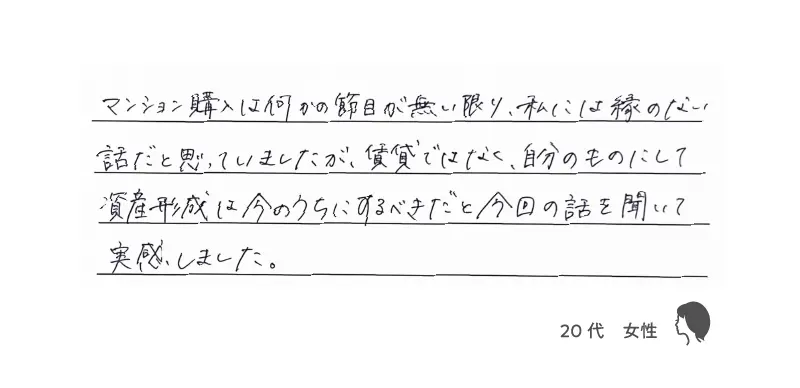 マンション購入は何かの節目が無い限り、私には縁のない
話だと思っていましたが、賃貸ではなく、自分のものにして
資産形成は今のうちにするべきだと今回の話を聞いて
実感しました。
20代 女性